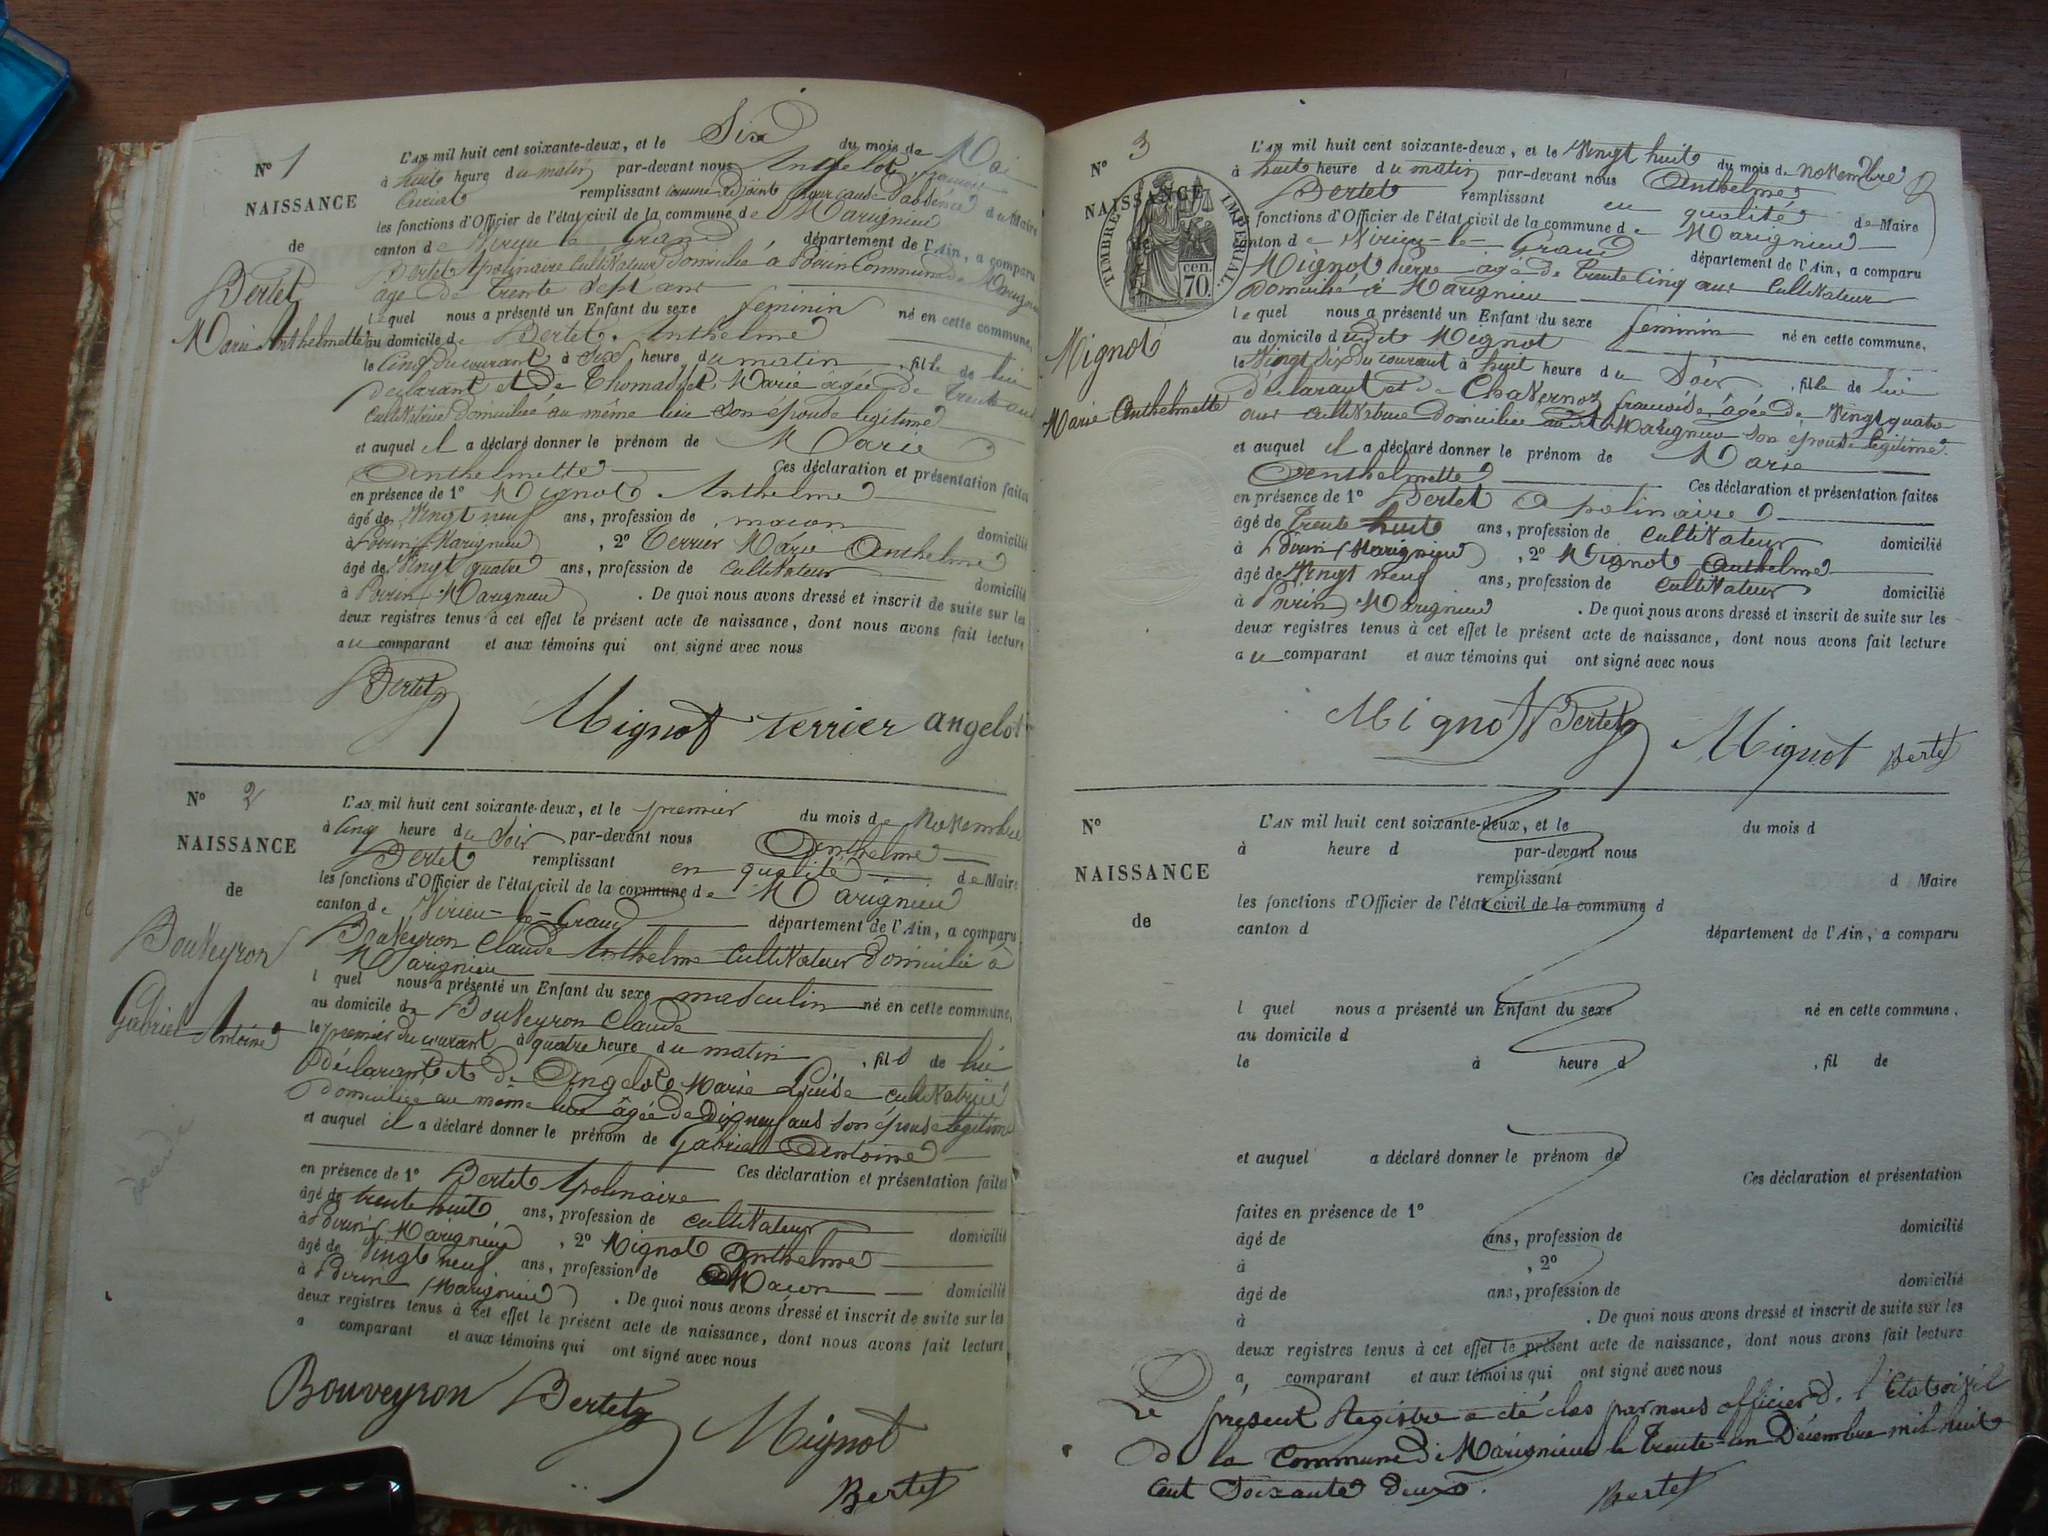 N° 1
NAISSANCE
de
Bertet
Marie Anthelmette
L'AN mil huit cent soixante-deux, et le Six du mois de Mai
à huit heure du matin par-devant nous Angelot
remplissant comme adjoint pour cause d'absence du Maire
les fonctions d'Officier de l'état civil de la commune de Marignieu
canton de Virieu le Grand département de l'Ain, a comparu
Bertet Apolinaire Cultivateur Domicilié à Poirin Commune de Marignieu
âgé de trente sept ans
lequel nous a présenté un Enfant du sexe féminin né en cette commune,
au domicile de Bertet Anthelme
le Cinq du courant à Six heure du matin, fille de lui
déclarant et de Marie âgée de Trente ans
Cultivatrice Domiciliée au même lieu son épouse légitime
et auquel il a déclaré donner le prénom de Marie
Anthelmette Ces déclaration et présentation faites
en présence de 1° Mignot Anthelme
âgé de Vingt neuf ans, profession de maçon domicilié
à Poirin Marignieu, 2° Terrier Marie Anthelme
âgé de Vingt quatre ans, profession de Cultivateur domicilié
à Poirin Marignieu. De quoi nous avons dressé et inscrit de suite sur les
deux registres tenus à cet effet le présent acte de naissance, dont nous avons fait lecture
au comparant et aux témoins qui ont signé avec nous
Bertet
Mignot terrier angelot
N° 2
NAISSANCE
de
Bouveyron
Gabriel Antoine
L'AN mil huit cent soixante-deux, et le premier du mois de Novembre
à Cinq heure du Soir par-devant nous Anthelme
Bertet remplissant en qualité de Maire
les fonctions d'Officier de l'état civil de la commune de Marignieu
canton de Virieu-le-Grand département de l'Ain, a comparu
Bouveyron Claude Anthelme Cultivateur Domicilié à
Marignieu
l quel nous a présenté un Enfant du sexe masculin né en cette commune,
au domicile de Bouveyron Claude
le premier du courant à quatre heure du matin, fils de lui
déclarant et de Angelot Marie Louise cultivatrice
Domiciliée au même lieu âgée de Dix neuf ans son épouse légitime
et auquel il a déclaré donner le prénom de Gabriel Antoine
Ces déclaration et présentation faites
en présence de 1° Bertet Apolinaire
âgé de trente huit ans, profession de cultivateur domicilié
à Poirin (Marignieu), 2° Mignot Anthelme
âgé de Vingt neuf ans, profession de Maçon domicilié
à Poirin (Marignieu). De quoi nous avons dressé et inscrit de suite sur les
deux registres tenus à cet effet le présent acte de naissance, dont nous avons fait lecture
a comparant et aux témoins qui ont signé avec nous
Bouveyron Bertet
Mignot
Bertet
N° 3
NAISSANCE
TIMBRE IMPERIAL
cen.
70.
Mignot
Marie Anthelmette
L'AN mil huit cent soixante-deux, et le Vingt huit du mois de Novembre
à huit heure du matin par-devant nous Anthelme
Bertet remplissant en qualité de Maire
les fonctions d'Officier de l'état civil de la commune de Marignieu
canton de Virieu-le-Grand département de l'Ain, a comparu
Mignot Pierre âgé de trente Cinq ans Cultivateur
Domicilié à Marignieu
le quel nous a présenté un Enfant du sexe féminin né en cette commune,
au domicile dudit Mignot
le Vingt Six du courant à huit heure du Soir, fille de lui
déclarant et de Chavernoz françoise, âgée de Vingt quatre
ans cultivatrice domiciliée Marignieu son épouse légitime.
et auquel il a déclaré donner le prénom de Marie
Anthelmette Ces déclaration et présentation faites
en présence de 1° Bertet Apolinaire
âgé de trente huit ans, profession de Cultivateur domicilié
à Poirin (Marignieu), 2° Mignot Anthelme
âgé de Vingt neuf ans, profession de Cultivateur domicilié
à Poirin Marignieu. De quoi nous avons dressé et inscrit de suite sur les
deux registres tenus à cet effet le présent acte de naissance, dont nous avons fait lecture
au comparant et aux témoins qui ont signé avec nous
Mignot Bertet
Mignot Bertet
N°
NAISSANCE
de
L'AN mil huit cent soixante-deux, et le du mois d
à heure d par-devant nous
remplissant d Maire
les fonctions d'Officier de l'état civil de la commune d
canton d département de l'Ain, a comparu
l quel nous a présenté un Enfant du sexe né en cette commune,
au domicile d
le à heure d , fil de
et auquel a déclaré donner le prénom de
Ces déclaration et présentation
faites en présence de 1°
âgé de ans, profession de domicilié
à , 2°
âgé de ans, profession de domicilié
à . De quoi nous avons dressé et inscrit de suite sur les
deux registres tenus à cet effet le présent acte de naissance, dont nous avons fait lecture
a comparant et aux témoins qui ont signé avec nous
Le présent Registre a été clos par nous officier de l'état civil
de la Commune de Marignieu le trente-un Décembre mil huit
Cent Soixante deux.
Bertet